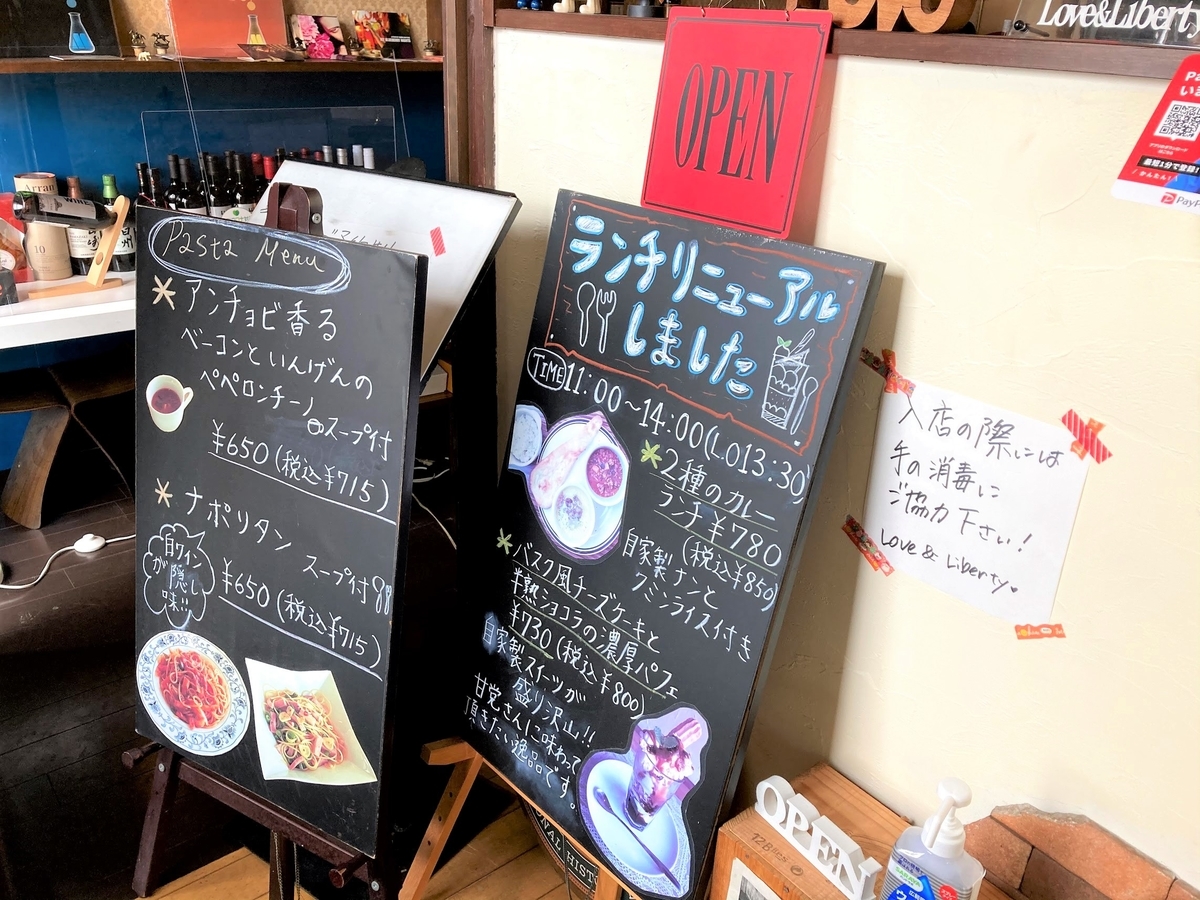 Pasta Menu
アンチョビ香る
ベーコンといんげんの
ペペロンチーノ
スープ付
¥650(税込¥715)
ナポリタン スープ付
白ワイン
が隠し
味!!
¥650(税込¥715)
OPEN
ランチリニューアル
しました
TIME 11:00~14:00(LO13:30)
2種のカレー
ランチ¥780
(税込¥850)
自家製ナンと
クミンライス付き
バスク風チーズケーキと
半熟ショコラの濃厚パフェ
¥730(税込¥800)
自家製スイーツが
盛り沢山!!
甘党さんに味わって
頂きたい逸品です。
入店の際には
手の消毒に
ご協力下さい!
Love & Liberty
Love&Liberty
最短1分で登録!
かんたん!
PayP
Arran
10
OPEN